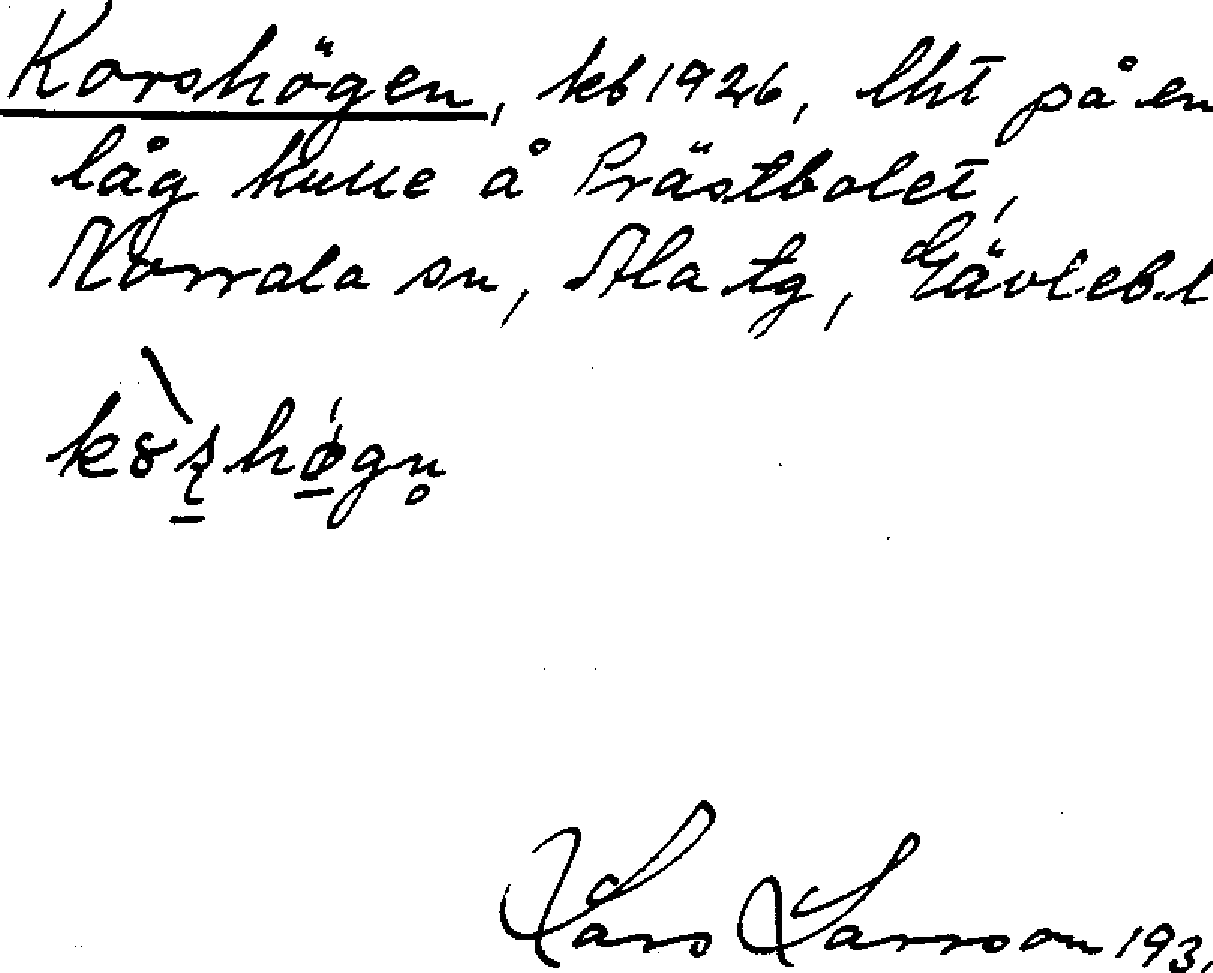 Korshögen, kb 1926, lht på en
låg kulle å Prästbolet,
Norrala sn, Ala tg, Gävleb.l
Lars Larsson 193